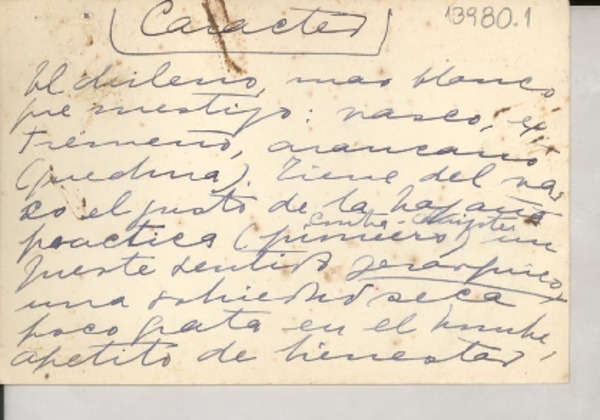 Caracter
13980.1
El chileno, mas blanco
que mestizo: vasco, ex-
tremeño, araucano
(quechua). Tiene del vas
co el gusto de la hazaña
contra-Quijote
practica (pionero) un
fuerte sentido jerarquico,
una sobriedad seca
poco grata en el hombre,
apetito de bienestar